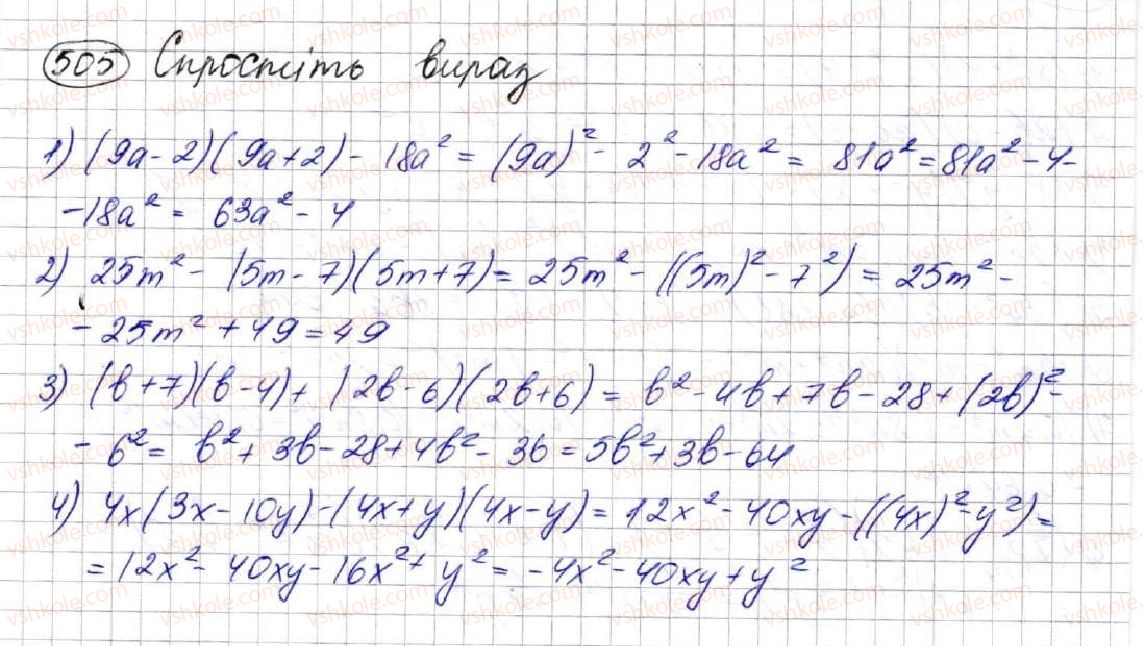 505 Спростіть вираз
1) (9a-2)(9a+2)- 18a² = (9a)²- 2²-18a² = 81a²=81a²-4-
-18a² = 63a²- 4
2) 25m² - (5m-7)(5m+7)= 25m² - ((5m)²-7²) = 25m² -
- 25m² +49=49
3) (b+7)(b-4)+ (2b-6)(2b+6) = b²-4b+7b-28+(2b)²-
- 6² = b²+ 3b-28+4b²- 36 = 5b²+3b-64
4) 4x(3x-10y)-(4x+y)(4x-y)= 12x²-40xy-((4x)²-y²)=
= 12x²- 40xy-16x²+ y² = -4x²-40xy+y²